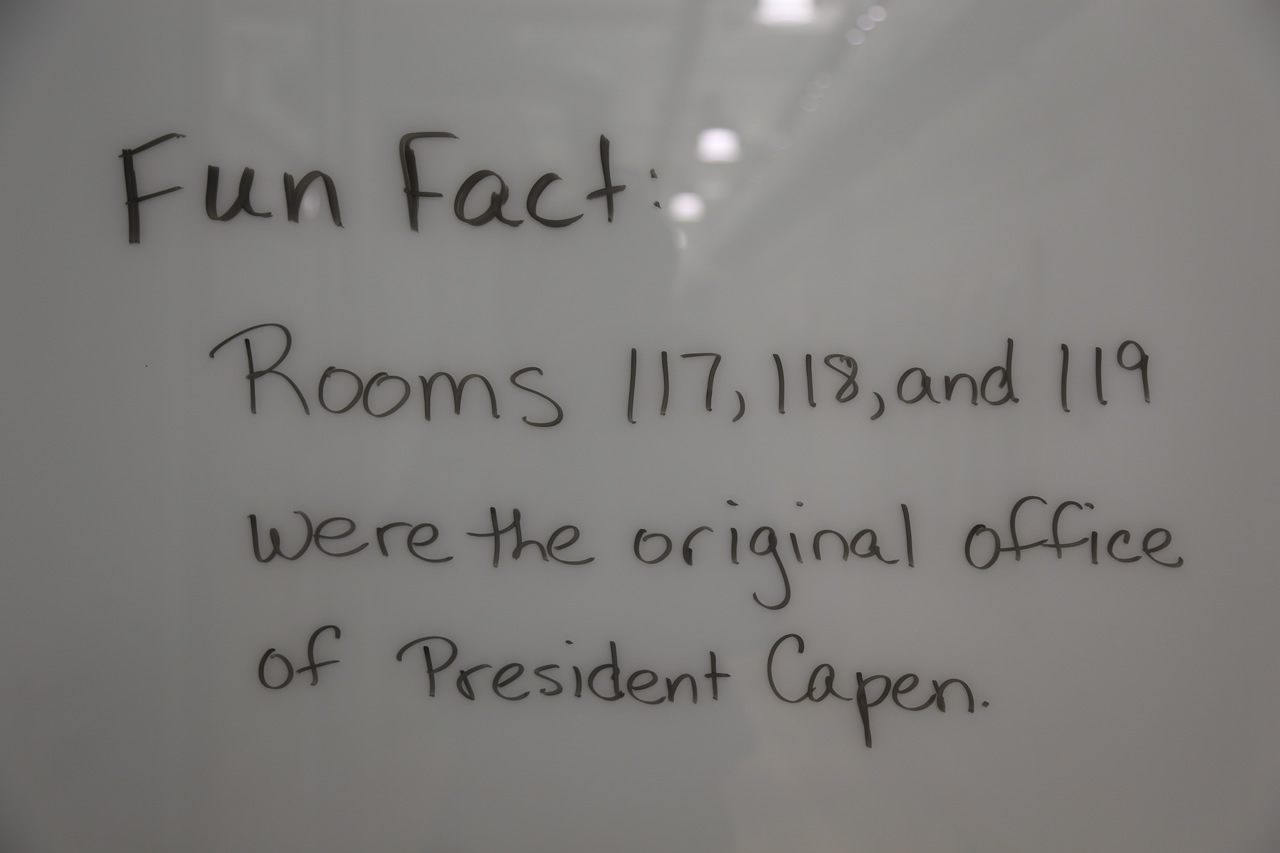 Fun Fact:
Rooms 117, 118, and 119
were the original office
of President Capen.